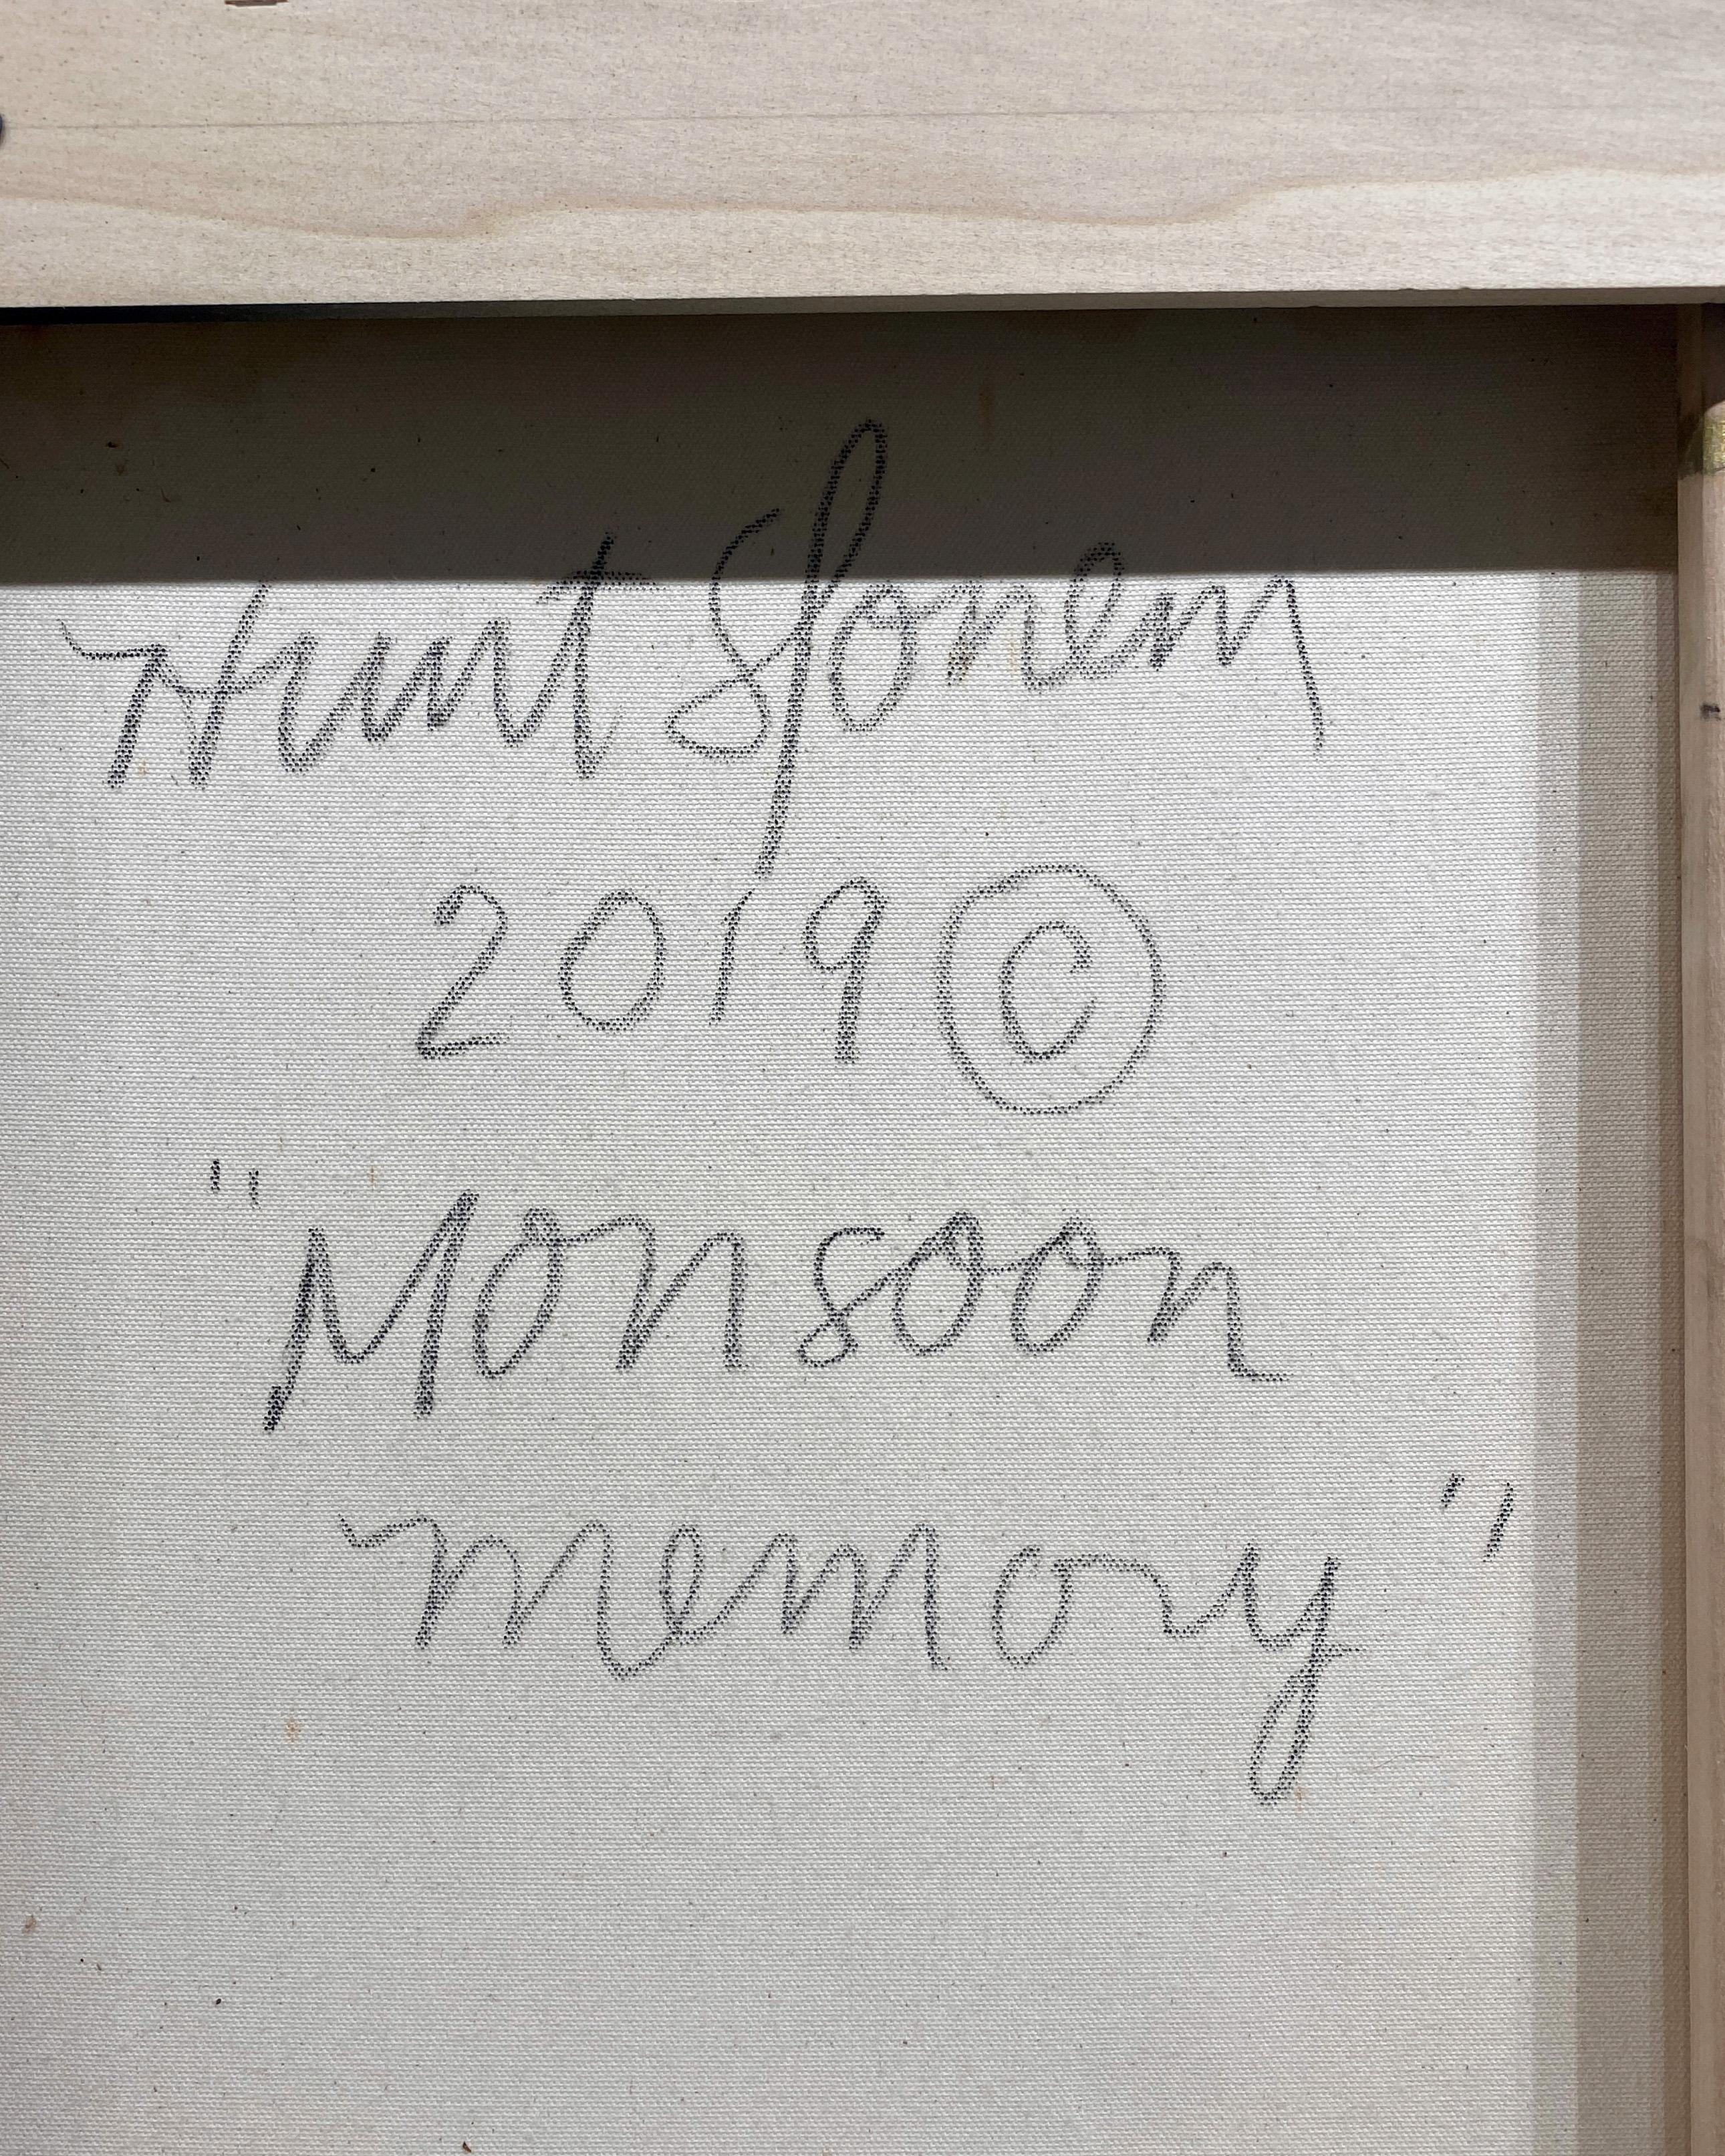 Hunt Slonem
2019 ©
"Monsoon
memory"